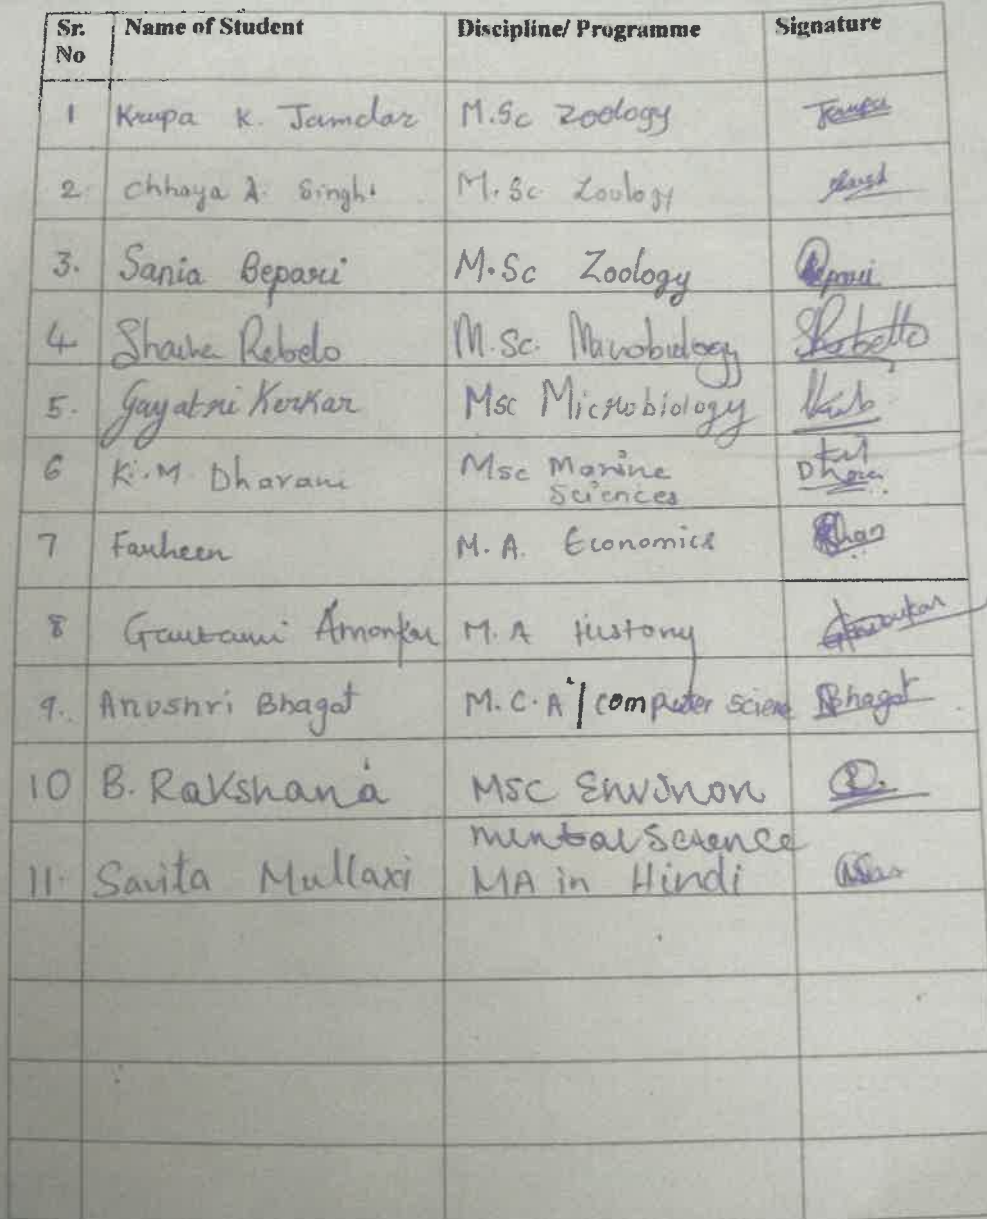 Sr. No Name of Student Discipline/ Programme Signature
1 Krupa K. Jamdar M.Sc Zoology Krupa
2 Chhaya A. Singh. M.Sc. Zoology Singh
3. Sania Bepari M.Sc Zoology Bepari
4 Rebelo M.Sc. Microbiology SRebello
5. Gayatri Kerkar Msc Microbiology
6 K.M. Dharani Msc Marine
Sciences
7 Farheen M.A. Economics Khan
8 Gautami Amonkar M.A History Amonkar
9. Anushri Bhagat M.C.A / computer science ABhagat
10 B. Rakshana MSC Environ
mental Science
11. Savita Mullaxi MA in Hindi